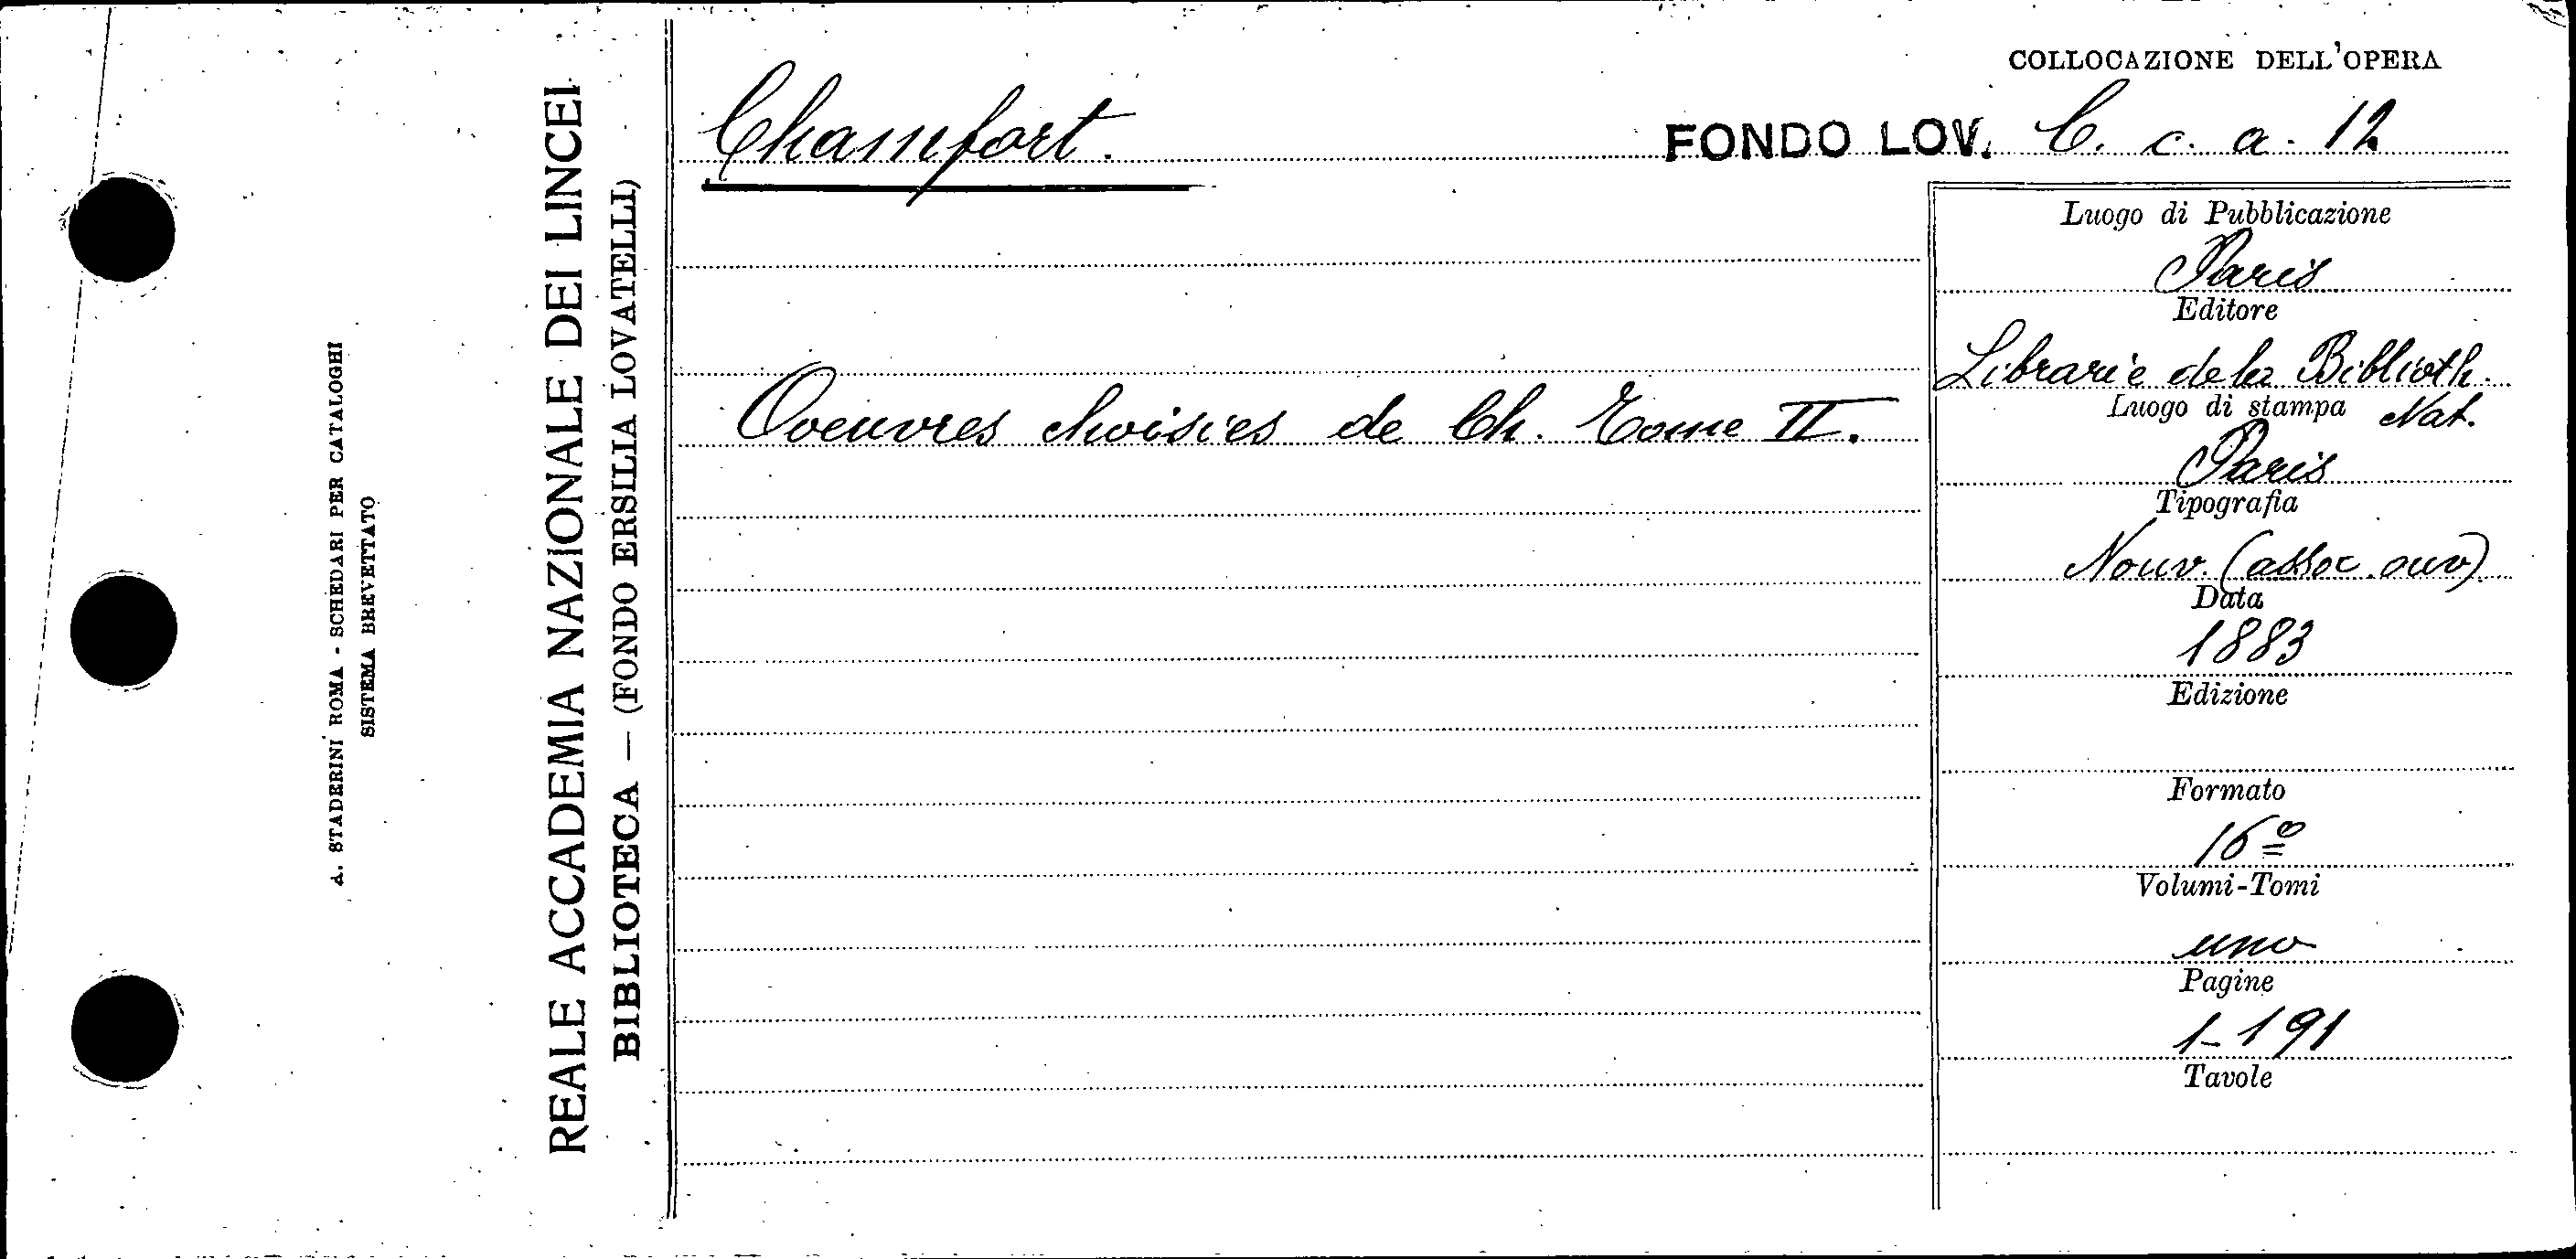 COLLOCAZIONE DELL'OPERA
Chamfort.
FONDO LOV. C. c. a. 12
Oveuvres choisies de Ch. Tome II.
Luogo di Pubblicazione
Paris
Editore
Librarie de la Biblioth.
Nat.
Luogo di stampa
Paris
Tipografia
Nouv. (assoc. ouv)
Data
1883
Edizione
Formato
16º
Volumi-Tomi
uno
Pagine
1-191
Tavole
REALE ACCADEMIA NAZIONALE DEI LINCEI
BIBLIOTECA — (FONDO ERSILIA LOVATELLI)
A. STADERINI ROMA - SCHEDARI PER CATALOGHI
SISTEMA BREVETTATO